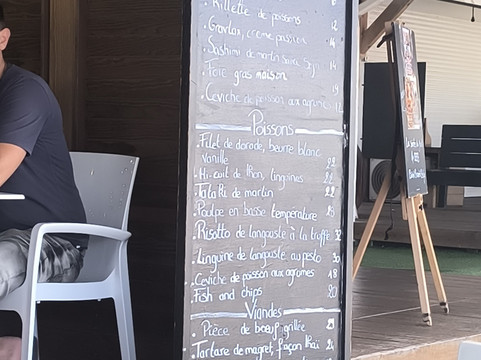 . Rillette de poissons
. Gravlax, crème passion 12
. Sashimi de martin Sauce Soja 14
. Foie gras maison 14
. Ceviche de poisson aux agrumes 12
Poissons
. Filet de dorade, beurre blanc
vanille 22
. Mi-cuit de thon, linguines 22
. Tataki de martin 22
. Poulpe en basse température
. Risotto de langouste à la truffe 32
. Linguine de langouste au pesto 30
. Ceviche de poisson aux agrumes 18
. Fish and chips 20
Viandes
. Pièce de bœuf grillée 29
. Tartare de magret, façon thaï 24